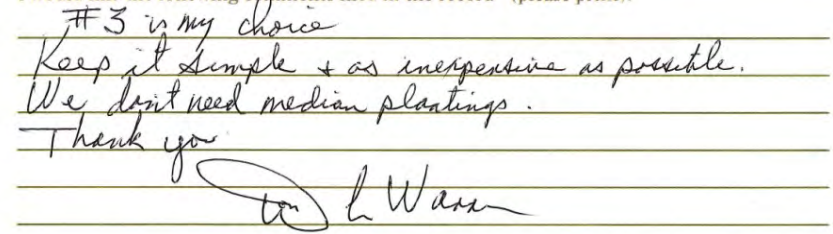 #3 is my choice
Keep it simple + as inexpensive as possible.
We don't need median plantings.
Thank you